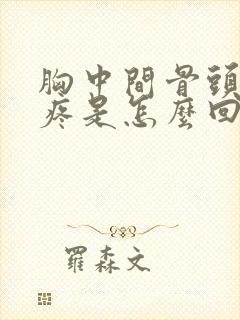 胸中間骨頭
疼是怎麼回
羅森文